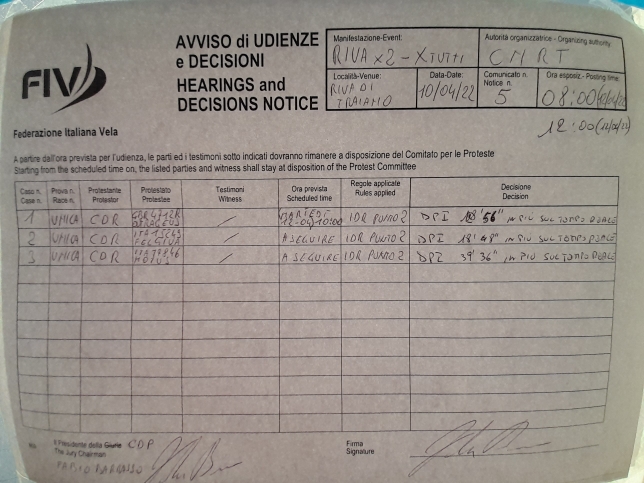 FIV
Federazione Italiana Vela
AVVISO di UDIENZE
e DECISIONI
HEARINGS and
DECISIONS NOTICE
Manifestazione-Event:
RIVA x2 - XTUTTI
Autorità organizzatrice - Organizing authority
CNRT
Località-Venue:
RIVA DI
TRAIANO
Data-Date:
10/04/22
Comunicato n.
Notice n.
5
Ora esposiz.- Posting time:
08:00
12:00 (12/04/22)
A partire dall'ora prevista per l'udienza, le parti ed i testimoni sotto indicati dovranno rimanere a disposizione del Comitato per le Proteste
Starting from the scheduled time on, the listed parties and witness shall stay at disposition of the Protest Committee
Caso n. Prova n. Protestante Protestato Testimoni Ora prevista Regole applicate Decisione
Case n. Race n. Protestor Protestee Witness Scheduled time Rules applied Decision
1 UNICA CDR / MARTEDI 12-04 10:00 IDR PUNTO 2 DPI 56" IN PIU SUL TEMPO REALE
2 UNICA CDR / A SEGUIRE IDR PUNTO 2 DPI 18' 48" IN PIU SUL TEMPO REALE
3 UNICA CDR / A SEGUIRE IDR PUNTO 2 DPI 39' 36" IN PIU SUL TEMPO REALE
Il Presidente della Giuria CDP
The Jury Chairman
FABIO BARASSO
Firma
Signature